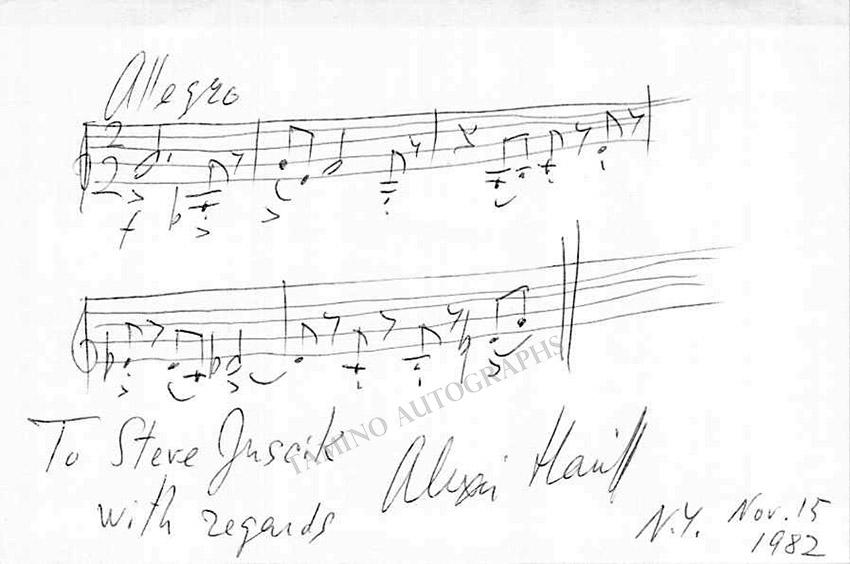 Allegro
2
2
f
To Steve
with regards
Alexei Haieff
N.Y. Nov. 15
1982
TAMINO AUTOGRAPHS